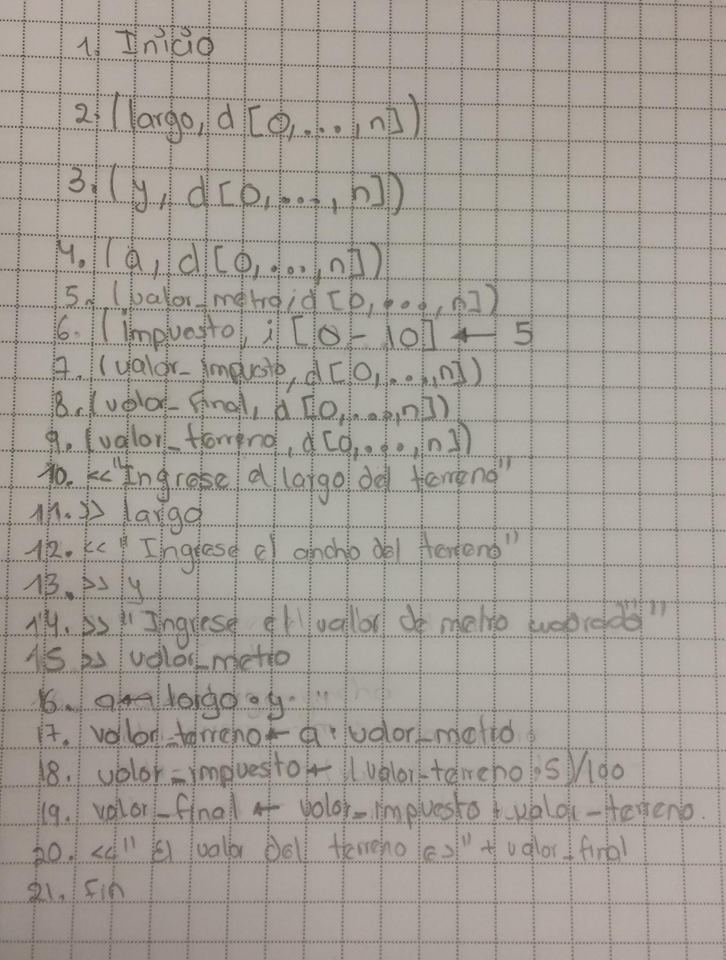 1. Inicio
2. (largo, d [0,...,n])
3. (y, d [0,...,n])
4. (a, d [0,...,n])
5. (valor_metro, d [0,...,n])
6. (impuesto, i [0-10] ← 5
7. (valor_impusto, d [0,...,n])
8. (valor_final, d [0,...,n])
9. (valor_terreno, d [0,...,n])
10. <<"Ingrese el largo del terreno"
11. >> largo
12. << "Ingrese el ancho del terreno"
13. >> y
14. >> "Ingrese el valor de metro"
15 >> valor_metro
16. a← largo • y.
17. valor_terreno ← a • valor_metro
18. valor_impuesto ← (valor_terreno • 5)/100
19. valor_final ← valor_impuesto + valor_terreno.
20. <<" El valor del terreno es" + valor_final
21. Fin